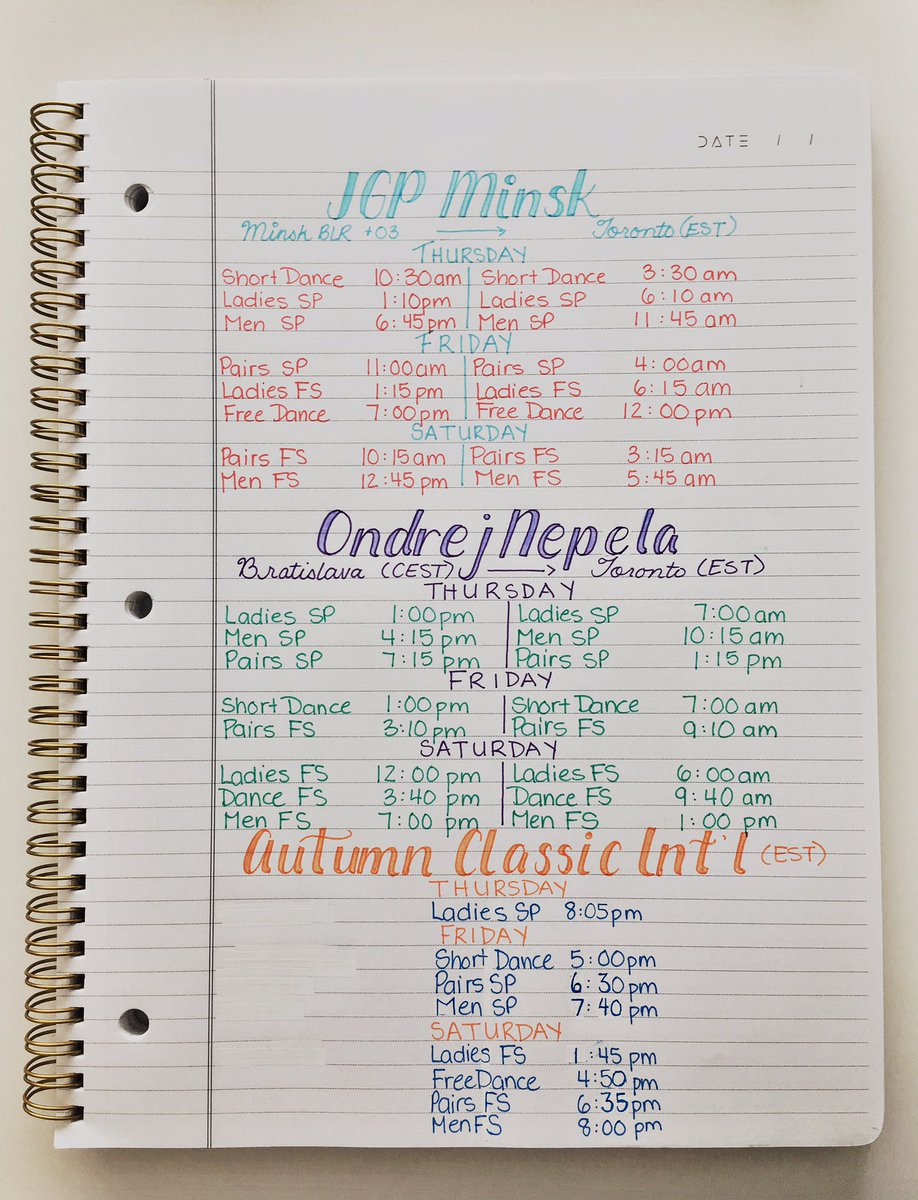 DATE / /
JGP Minsk
Minsk BLR +03 → Toronto (EST)
THURSDAY
Short Dance 10:30am Short Dance 3:30 am
Ladies SP 1:10pm Ladies SP 6:10 am
Men SP 6:45pm Men SP 11:45 am
FRIDAY
Pairs SP 11:00am Pairs SP 4:00am
Ladies FS 1:15 pm Ladies FS 6:15 am
Free Dance 7:00pm Free Dance 12:00pm
SATURDAY
Pairs FS 10:15am Pairs FS 3:15 am
Men FS 12:45 pm Men FS 5:45 am
Ondrej Nepela
Bratislava (CEST) → Toronto (EST)
THURSDAY
Ladies SP 1:00pm Ladies SP 7:00am
Men SP 4:15pm Men SP 10:15 am
Pairs SP 7:15 pm Pairs SP 1:15 pm
FRIDAY
Short Dance 1:00pm Short Dance 7:00 am
Pairs FS 3:10 pm Pairs FS 9:10 am
SATURDAY
Ladies FS 12:00 pm Ladies FS 6:00am
Dance FS 3:40 pm Dance FS 9:40 am
Men FS 7:00 pm Men FS 1:00 pm
Autumn Classic Int'l (EST)
THURSDAY
Ladies SP 8:05pm
FRIDAY
Short Dance 5:00pm
Pairs SP 6:30pm
Men SP 7:40 pm
SATURDAY
Ladies FS 1:45 pm
Free Dance 4:50 pm
Pairs FS 6:35pm
Men FS 8:00 pm